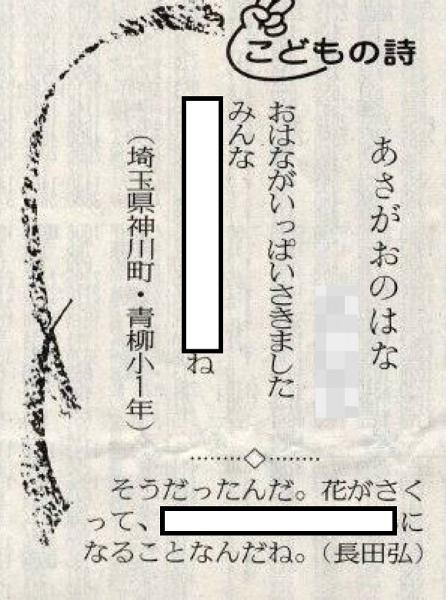 こどもの詩
あさがおのはな
おはながいっぱいさきました
みんな
ね
（埼玉県神川町・青柳小1年）
そうだったんだ。花がさく
って、
に
なることなんだね。（長田弘）